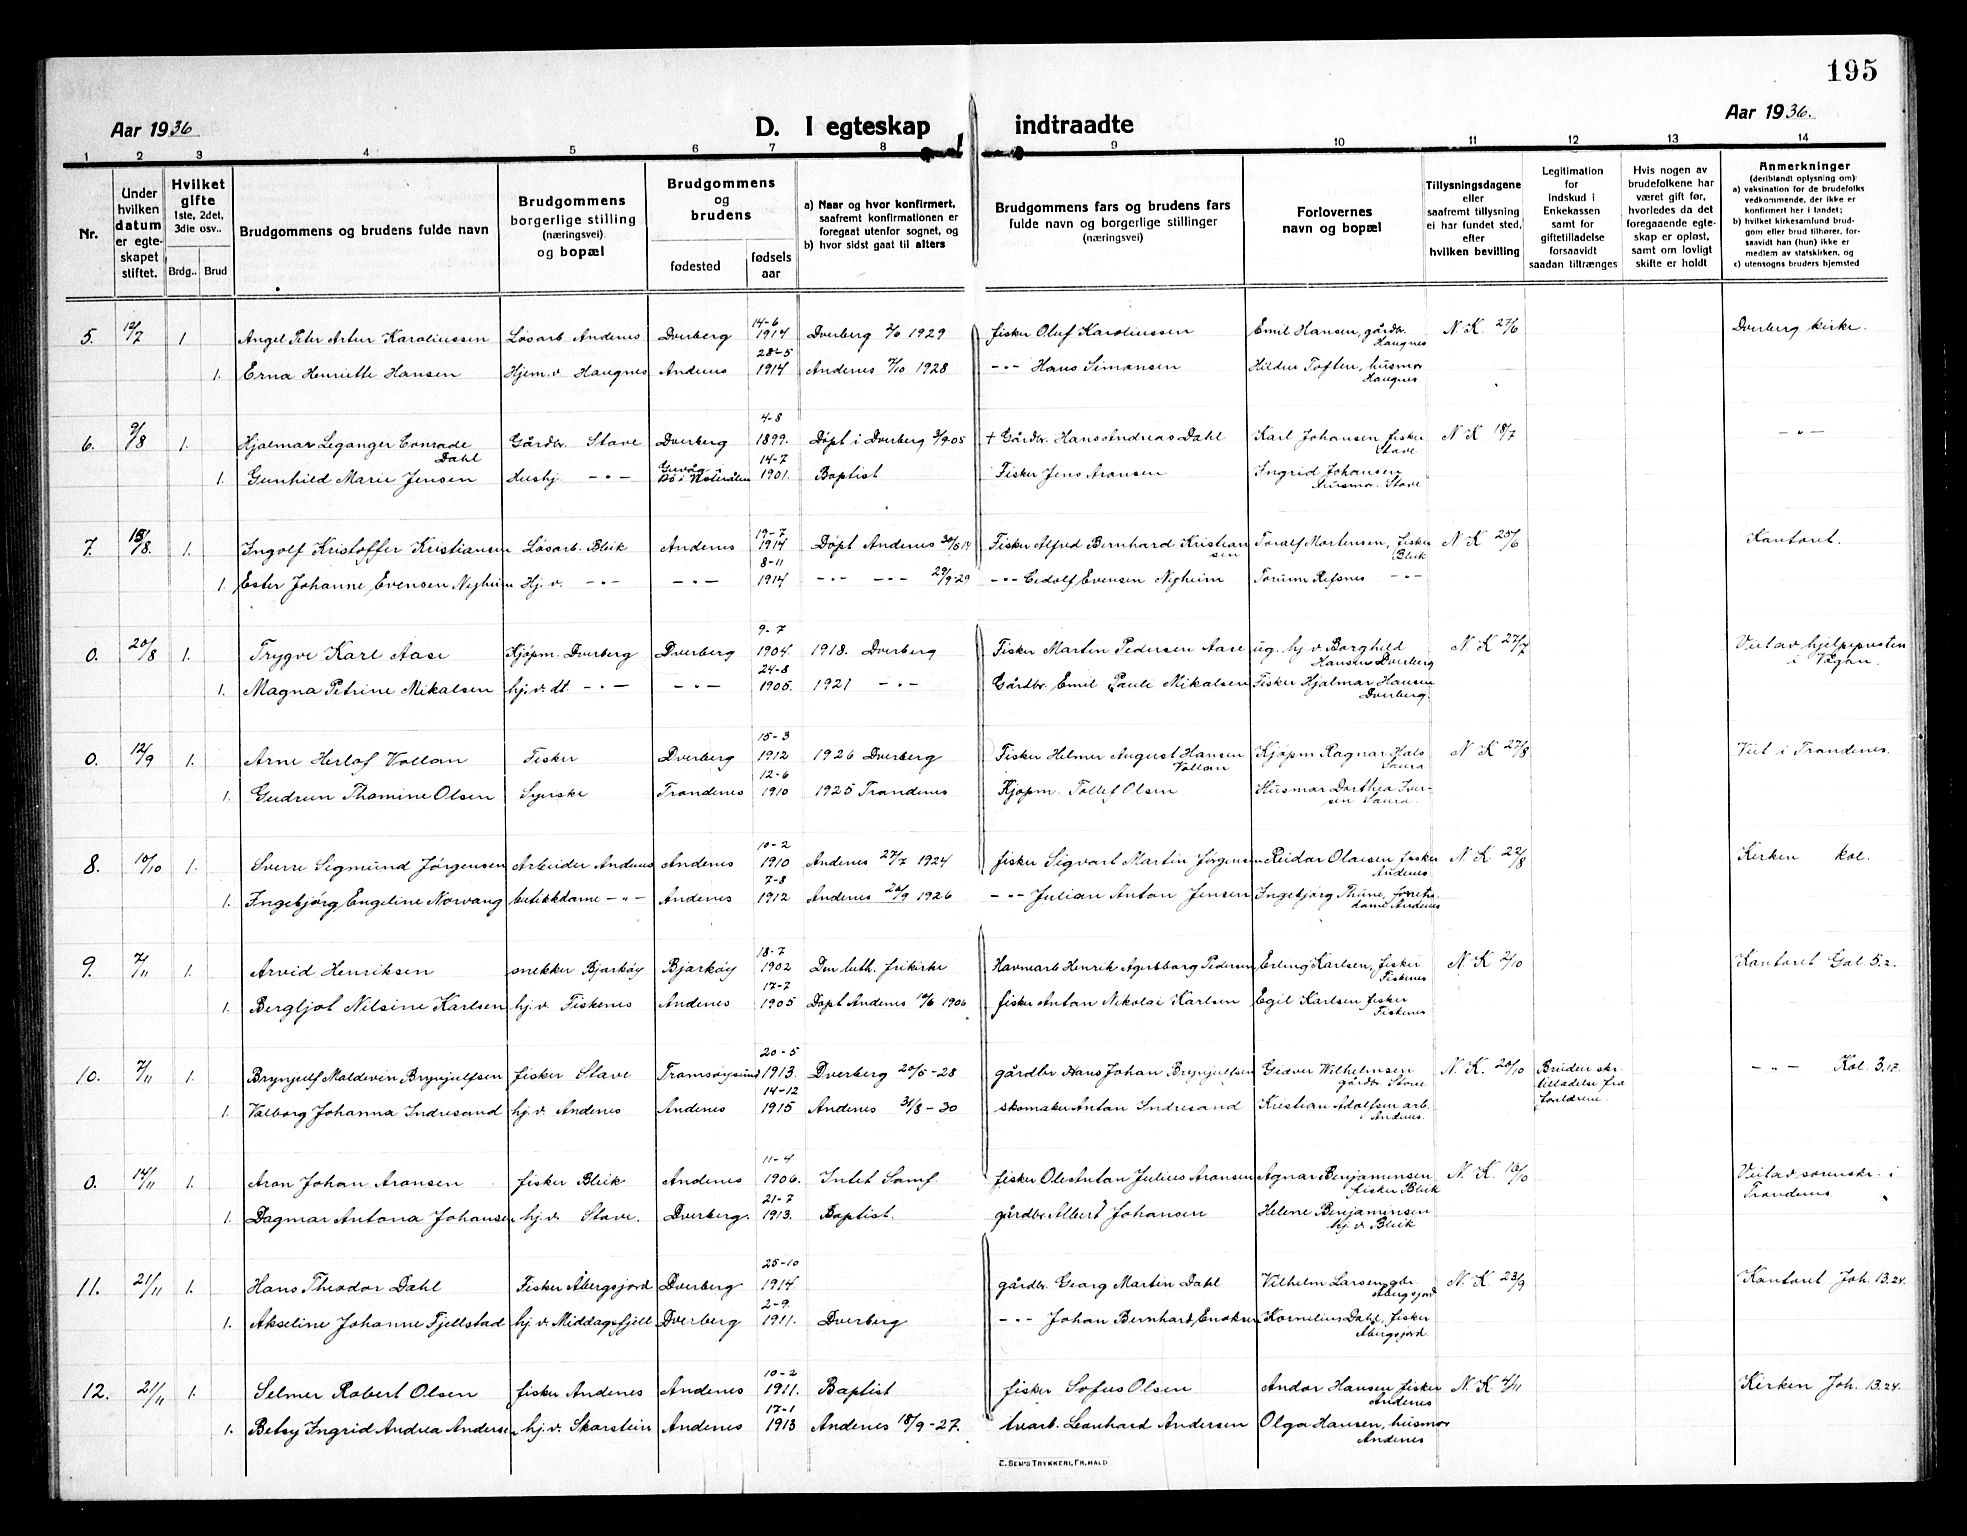 195
Aar 1936
D. I egteskap indtraadte
Aar 1936.
1 2 3 4 5 6 7 8 9 10 11 12 13 14
Nr.
Under hvilken datum er egteskapet stiftet.
Hvilket gifte 1ste, 2det, 3die osv..
Brdg.. Brud
Brudgommens og brudens fulde navn
Brudgommens borgerlige stilling (næringsvei) og bopæl
Brudgommens og brudens
fødested
fødsels aar
a) Naar og hvor konfirmert, saafremt konfirmationen er foregaat utenfor sognet, og
b) hvor sidst gaat til alters
Brudgommens fars og brudens fars fulde navn og borgerlige stillinger (næringsvei)
Forlovernes navn og bopæl
Tillysningsdagene eller saafremt tillysning ei har fundet sted, efter hvilken bevilling
Legitimation for indskud i Enkekassen samt for giftetilladelse forsaavidt saadan tiltrænges
Hvis nogen av brudefolkene har været gift før, hvorledes da det foregaaende egteskap er opløst, samt om lovligt skifte er holdt
Anmerkninger (deriblandt oplysning om):
a) vaksination for de brudefolks vedkommende, der ikke er konfirmert her i landet;
b) hvilket kirkesamfund brudgom eller brud tilhører, forsaavidt han (hun) ikke er medlem av statskirken, og
c) utensogns bruders hjemsted
5. 12/7 1 Angel Peter Artur Karoliussen Løsarb Andenes Dverberg 14-6 1914 Dverberg 2/6 1929 fisker Oluf Karoliussen Emil Hansen, gårdbr. Haugnes N.K 27/6 Dverberg kirke.
1. Erna Henriette Hansen Hjem. v. Haugnes Andenes 28-5 1914 Andenes 7/10 1928 -"- Hans Simonsen Hildur Toften, husmor Haugnes
6. 9/8 1. Hjalmar Leganger Conrade Dahl Gårdbr. Stave Dverberg 4-8 1899. Døpt i Dverberg 3/9 05 + Gårdbr. Hans Andreas Dahl Karl Johansen, fisker Stave N K 18/7 -"-
1. Gunhild Marie Jensen Hushj. -"- Bø i Vesterålen 14-7 1901. Baptist Fisker Jens Aronsen Ingrid Johansen husmor. Stave
7. 15/8. 1. Ingolf Kristoffer Kristiansen Løsarb. Bleik Andenes 19-7 1914 Døpt Andenes 30/8 14 Fisker Alfred Bernhard Kristiansen Toralf Mortensen, fisker Bleik N K 25/6 Kontoret.
1. Ester Johanne Evensen Nyheim Hj. v. -"- -"- 8-11 1914 -"- -"- 29/9-29 -"- Edolf Evensen Nyheim Torunn Refsnes -"-
0. 20/8 1. Trygve Karl Aase Kjøpm. Dverberg Dverberg 9-7 1904 1918. Dverberg Fisker Martin Pedersen Aase ug. hj v Borghild Hansen Dverberg N. K 27/7 Viet av hjelpepresten i Vågan.
1. Magna Petrine Mikalsen hj. v. dt. -"- -"- 24-8 1905. 1921 -"- Gårdbr. Emil Pauli Mikalsen Fisker Hjalmar Hansen Dverberg.
0. 12/9 1. Arne Herlof Vollan Fisker Dverberg 15-3 1912 1926 Dverberg Fisker Helmer August Hansen Vollan Kjøpm Ragnar Hals Saura N K 27/8 Viet i Trondenes.
1. Gudrun Thomine Olsen Syerske Trondenes 12-6 1910 1925 Trondenes Kjøpm. Tollef Olsen Husmor Dorthea Iversen Saura.
8. 10/10 1. Sverre Sigmund Jørgensen Arbeider Andenes Andenes 10-2 1910 Andenes 27/7 1924 fisker Sigvart Martin Jørgensen Reidar Olaisen fisker Andenes N. K 22/8 Kirken Kol.
1. Ingebjørg Engeline Norvang butikkdame -"- Andenes 7-8 1912 Andenes 26/9 1926 -"- Julian Anton Jensen Ingebjørg Thune, Andenes
9. 7/11 1. Arvid Henriksen snekker Bjarkøy Bjarkøy 18-7 1902 Den luth. frikirke Havnearb Henrik Agerborg Pedersen Erling Karlsen, fisker Fiskenes N. K 2/10 Kontoret Gal. 5.2.
1. Bergljot Nilsine Karlsen hj. v. Fiskenes Andenes 17-7 1905 Døpt Andenes 10/6 1906 fisker Anton Nikolai Karlsen Egil Karlsen fisker Fiskenes
10. 7/11 1. Brynjulf Moldevin Brynjulfsen fisker Stave Tromsøysund 20-5 1913. Dverberg 20/5-28 gårdbr Hans Johan Brynjulfsen Gidver Wilhelmsen gårdbr. Stave N. K. 20/10 Bruden skr. tilladelse fra foreldrene. -"- Kol. 3.17.
1. Valborg Johanna Indresand hj. v. Andenes Andenes 14-12 1915 Andenes 31/8-30 skomaker Anton Indresand Kristian Adolfsen arb. Andenes.
0. 14/11 1. Aron Johan Aronsen fisker Bleik Andenes 11-4 1906. Intet Samf. fisker Ole Anton Julius Aronsen Agnar Benjaminsen fisker Bleik N. K. 10/10 Viet av sorenskr. i Trondenes
1. Dagmar Antona Johansen hj. v. Stave. Dverberg. 21-7 1913. Baptist. gårdbr Albert Johansen Helene Benjaminsen hj. v. Bleik
11. 21/11 1. Hans Theodor Dahl Fisker Åbergsjord Dverberg 25-10 1914. gårdbr. Georg Martin Dahl Vilhelm Larsen gbr Åbergsjord N. K 23/9 Kontoret Joh. 13.24.
1. Akseline Johanne Fjellstad hj. v. Middagsfjell Dverberg 2-9. 1911. Dverberg -"- Johan Bernhard Enoksen Kornelius Dahl, fisker Åbergsjord.
12. 21/11 1. Selmer Robert Olsen fisker Andenes Andenes 10-2 1911. Baptist fisker Sofus Olsen Andor Hansen fisker Andenes N. K 4/11 Kirken Joh. 13.24.
1. Betsy Ingrid Andrea Andersen hj. v. Skarstein Andenes 17-1 1913 Andenes 18/9-27. Leonhard Andersen Olga Hansen, husmor Andenes
E. SEM'S TRYKKERI, FR.HALD